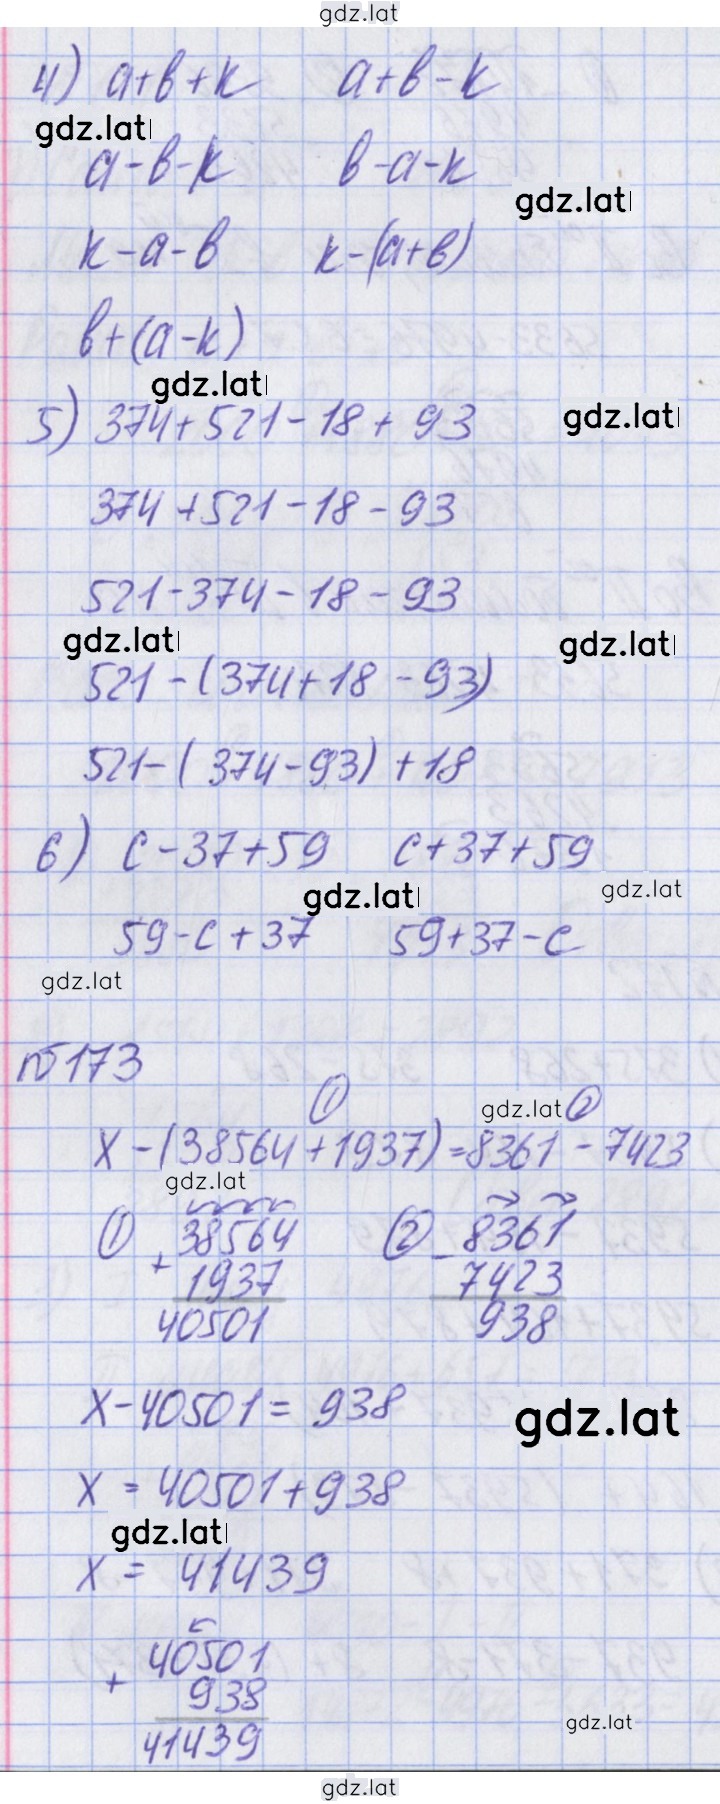 gdz.lat
4) а+в+к а+в-к
gdz.lat
а-в-к в-а-к
gdz.lat
к-а-в к-(а+в)
в+(а-к)
gdz.lat
5) 374+521-18+93
gdz.lat
374+521-18-93
521-374-18-93
gdz.lat gdz.lat
521-(374+18-93)
521-(374-93)+18
6) с-37+59 с+37+59
gdz.lat gdz.lat
59-с+37 59+37-с
gdz.lat
№173
① gdz.lat ②
х-(38564+1937)=8361-7423
gdz.lat
① 38564 ② 8361
+ -
1937 7423
40501 938
х-40501=938
gdz.lat
х=40501+938
gdz.lat
х=41439
40501
+
938
gdz.lat
41439
gdz.lat